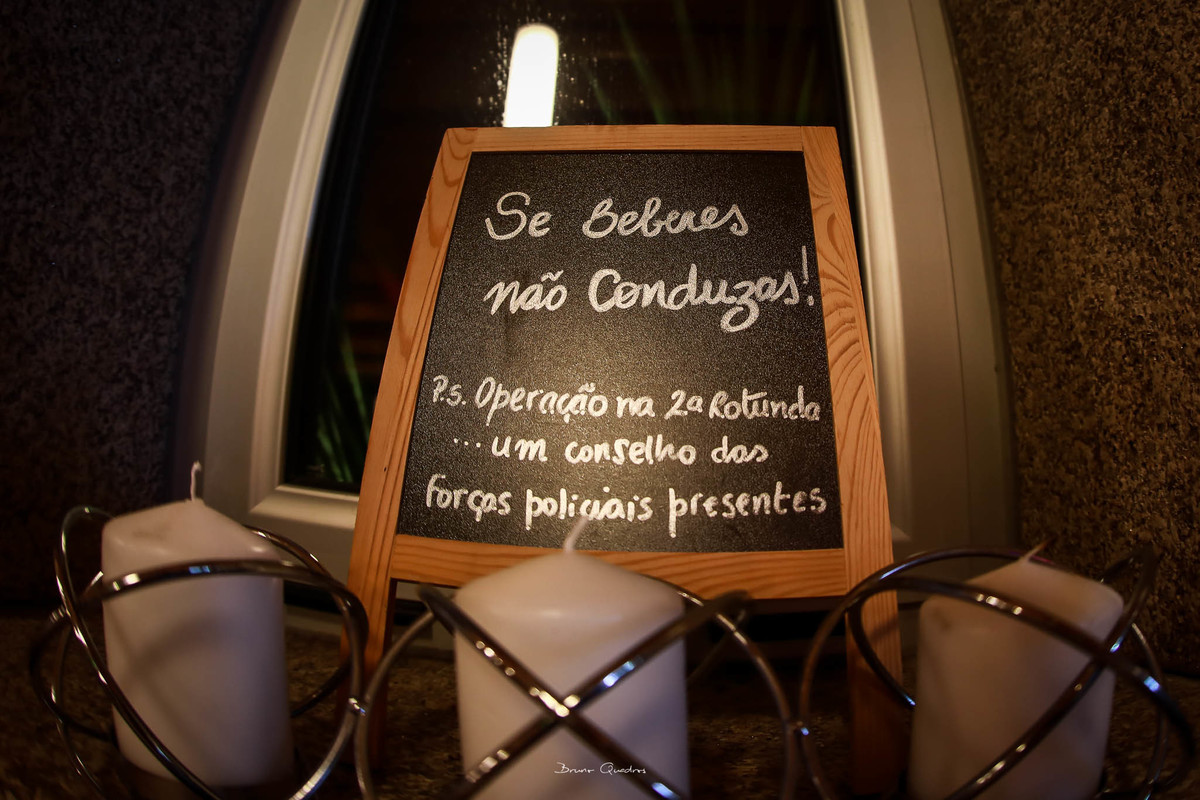 Se Beberes
não Conduzas!
P.s. Operação na 2ª Rotunda
... um conselho das
forças policiais presentes
Bruno Quadros